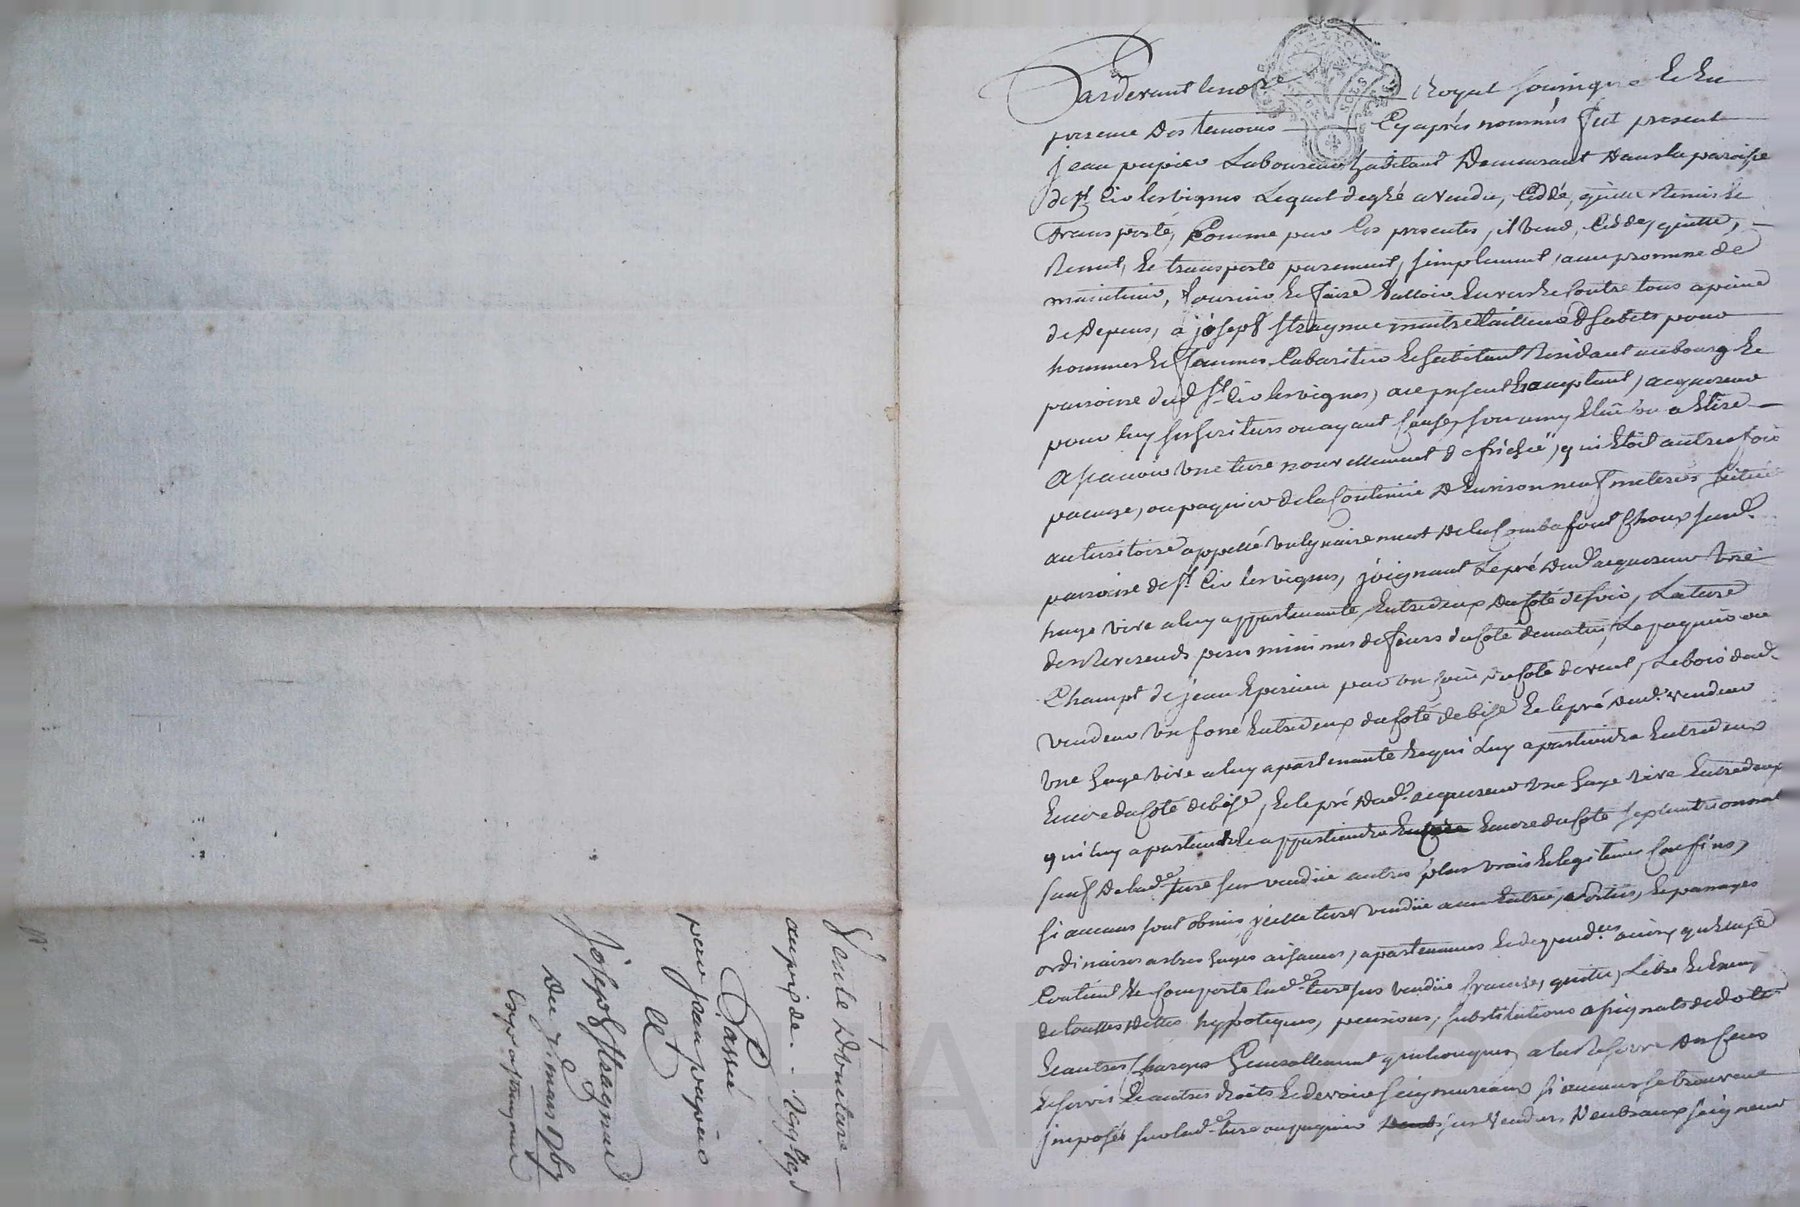 Pardevant le not.re Royal soussigné et en
presence des temoins Cy aprés nommés fut present
jean papier Laboureur habitant demeurant dans la paroisse
de St Cir les vignes Lequel de gré a vendu, Cédé, quitté remis et
transporté, Comme par les presentes, il vend, Cédde, quitte,
Remet, et transporte purement, simplement, avec promesse de
maintenir, fournir et faire valloir Envers et Contre tous a peine
de depens, à joseph Stragnue maitre tailleur d'habits pour
hommes et femmes Cabaritier et habitant Residant au bourg et
paroisse dud. St Cir les vignes, acy present et acceptant, acquereur
pour luy ses heritiers ou ayant Cause, son amy Elû ou a Elire
a scavoir une terre nouvellement defrichée, qui etoit autrefois
pacage, ou paquier de la Contenüe d'Environ neuf meterées scitué
au teritoire appellé vulgairement de la Comba font Choux susd.
paroisse de St Cir les vignes, joignant Le pré dud. acquereur une
haye vive a luy appartenante Entredeux du Coté de soir, La terre
des Reverends peres minimes de feurs du Coté de matin, Le paquier ou
Champt de jean Eperieu par un du Coté de vent, Le bois dud.
vendeur un fossé Entredeux du Coté de bize Et le pré dud. vendeur
une haye vive a luy apartenante Et qui Luy apartiendra Entredeux
Encore du Coté de bize, Et le pré dud. acquereur une haye vive Entredeux
qui luy apartient Et appartiendra Encore du Coté septentrionnal
sauf de lad.e terre sus vendüe autres plus vrais et legitimes Confins,
si aucuns sont obmis, jcelle terre vendüe avec Entrées, sorties, Et passages
ordinaires arbres hayes aisances, apartenances Et dependces ainsy qu'Elle se
Contient Et Comporte lad.e terre sus vendüe franche, quitte, Libre Et Exempte
de touttes dettes hypoteques, pensions, substitutions assignats de dote
Et autres Charges Generallement quelconques, a la Reserve des Cens
Et servis Et autres droits Et devoirs seigneuriaux si aucuns se trouvent
jmposés sur lad.e terre ou paquier sus vendus Envers seigneur
Vente D'une terre
au prix de
Passée
par jean papier
A
Joseph Stragnue
Du 7 mars 1767